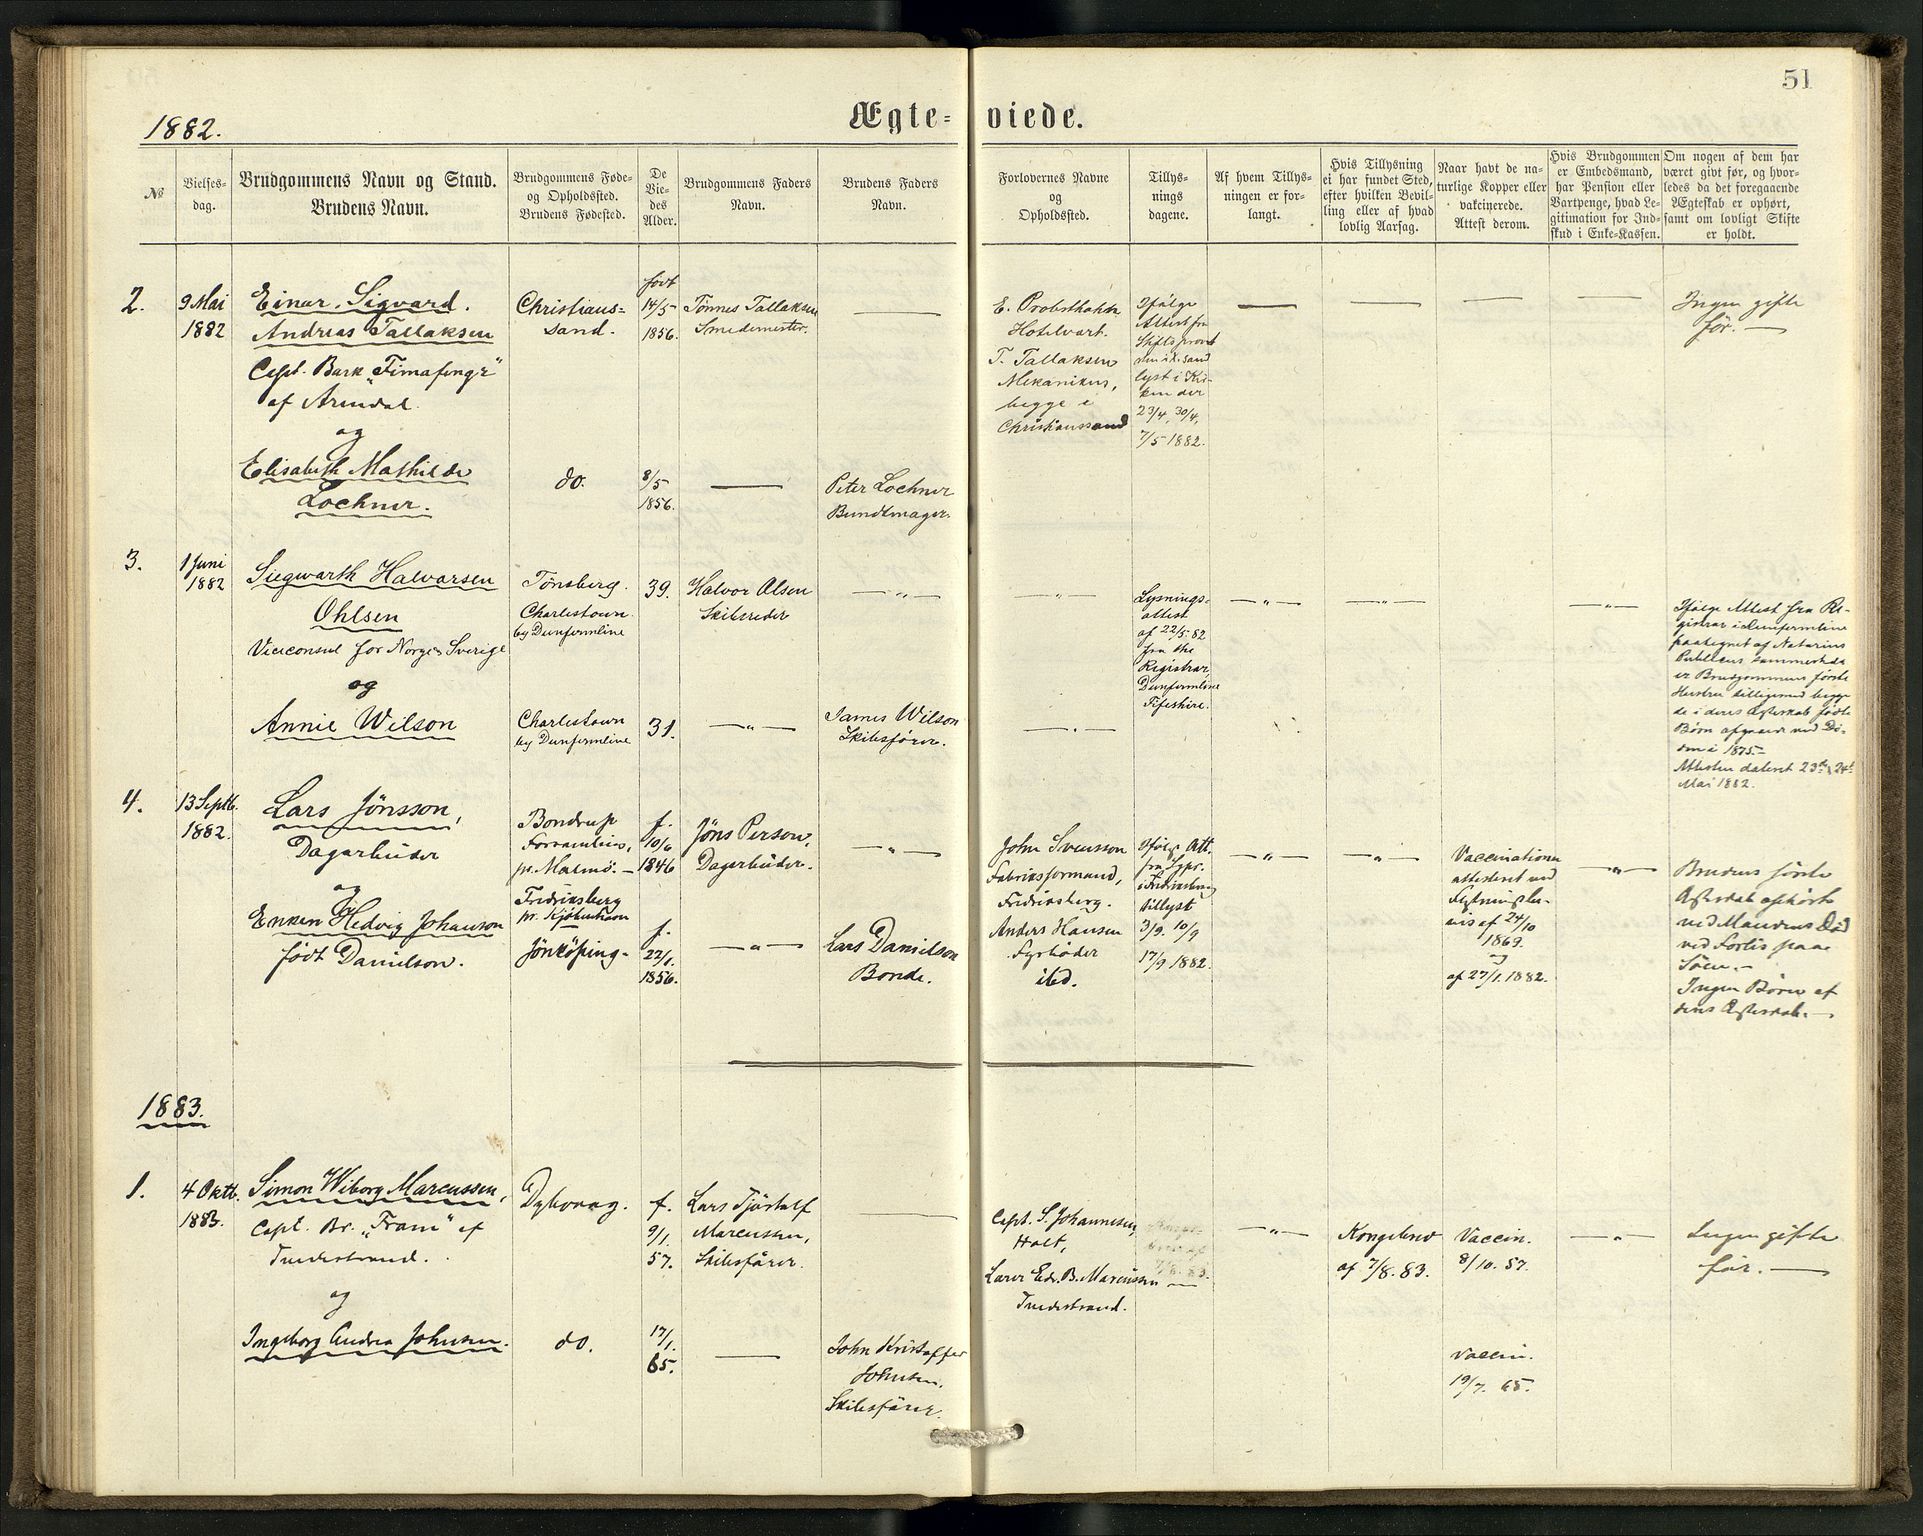 51
Ægte= viede.
1882.
№
Vielses-
dag.
Brudgommens Navn og Stand.
Brudens Navn.
Brudgommens Føde-
og Opholdssted.
Brudens Fødested.
De
Vie-
des
Alder.
Brudgommens Faders
Navn.
Brudens Faders
Navn.
Forlovernes Navne
og
Opholdssted.
Tillys-
nings
dagene.
Af hvem Tillys-
ningen er for-
langt.
Hvis Tillysning
ei har fundet Sted,
efter hvilken Bevil-
ling eller af hvad
lovlig Aarsag.
Naar havt de na-
turlige Kopper eller
vakcinerede.
Attest derom.
Hvis Brudgommen
er Embedsmand,
har Pension eller
Vartpenge, hvad Le-
gitimation for Ind-
skud i Enke-Kassen.
Om nogen af dem har
været givt før, og hvor-
ledes da det foregaaende
Ægteskab er ophørt,
samt om lovligt Skifte
er holdt.
2.
9 Mai
1882
Einar Sigvard
Andreas Tallaksen
Capt. Bark „Fimafeng"
af Arendal.
og
Elisabeth Mathilde
Lochner.
Christians=
sand.
do.
født
14/5
1856.
8/5
1856.
Tønnes Tallaksen
Smedemester.
Peter Lochner
Bundtmager.
E. Probsthahn
Hotelvært.
T. Tallaksen
Mekanikus,
begge i
Christianssand
Ifølge
Attest fra
Stiftsprovst
den i X.sand
lyst i Kir-
ken der
23/4, 30/4,
7/5 1882.
Ingen gifte
før. —
3.
1 Juni
1882
Siegwarth Halvorsen
Ohlsen
Viceconsul for Norge & Sverige
og
Annie Wilson
Tønsberg.
Charlestown
by Dunfermline
Charlestown
by Dunfermline
39.
31.
Halvor Olsen
Skibsreder
— „ —
James Wilson
Skibsfører.
Lysnings=
attest
af 22/5. 82
fra the
Registrar,
Dunfermline
Fifeshire.
Ifølge Attest fra Re-
gistrar i Dunfermline
paategnet af Notarius
Publicus sammesteds
er Brudgommens første
Hustru tilligemed begge
de i deres Ægteskab fødte
Børn afgaaet ved Dø-
den i 1875.—
Attesten dateret 23de & 24de
Mai 1882.
4.
13 Septb.
1882.
Lars Jönsson,
Dagarbüder
og
Enken Hedvig Johanson
født Danielson.
Bondrup
pr. Malmö. —
Fredriksberg
pr. Kjöbenhavn
Jönköping.
f.
10/6
1846
f.
22/1.
1856.
Jöns Person,
Dagarbüder.
— „ —
Lars Danielson
Bonde.
John Svensson
Fabriksformand,
Fredriksberg.
Anders Hansen
Fyrböder
ibd.
Ifølge Att.
fra Sypr.
i Fredriksberg
tillyst
3/9. 10/9
17/9 1882.
Vaccinationen
attesteret ved
Flytningsbe-
vis af 24/10
1869.
og
af 27/1. 1882.
Brudens første
Ægteskab ophørte
ved Mandens Död
ved Forlis paa
Söen.—
Ingen Börn af
dens Ægteskab.—
1883.
1.
4 Oktb.
1883.
Simon Wiborg Marcussen,
Capt. Br. „Fram" af
Tvedestrand.
og
Ingeborg Andrea Johnsen.
Dybvaag.
do.
f.
9/1.
57.
17/1.
65.
Lars Tjöstolf
Marcussen,
Skibsfører.
John Kristoffer
Johnsen,
Skibsfører.
Capt. S. Johannesen,
Holt,
Lærer Edv. B. Marcussen
Tvedestrand.
Kongebrev
af 7/8. 83.
Vaccin.
8/10. 57.
Vaccin.
19/7. 65.
Ingen gifte
før. —